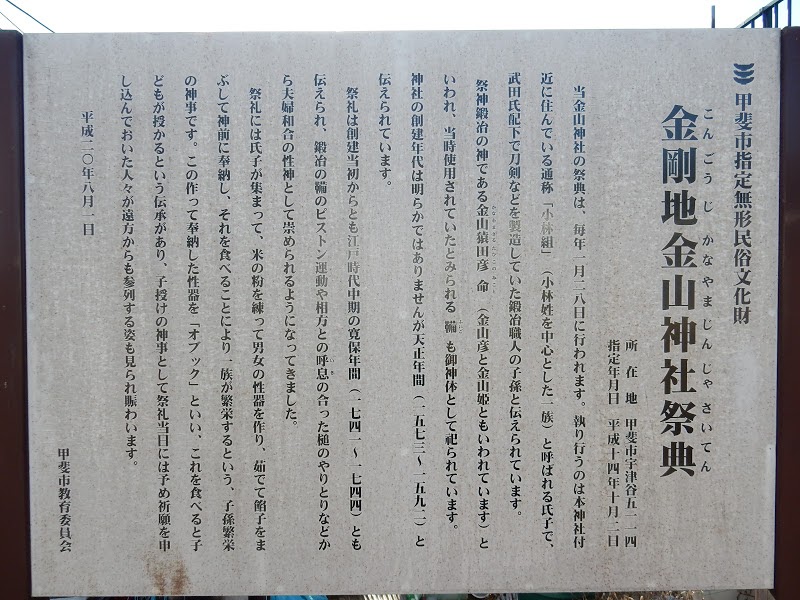 甲斐市指定無形民俗文化財
こんごうじかなやまじんじゃさいてん
金剛地金山神社祭典
所在地 甲斐市宇津谷五二一四
指定年月日 平成十四年十月二日
当金山神社の祭典は、毎年一月二八日に行われます。執り行うのは本神社付
近に住んでいる通称「小林組」（小林姓を中心とした一族）と呼ばれる氏子で、
武田氏配下で刀剣などを製造していた鍛冶職人の子孫と伝えられています。
祭神鍛冶の神である金山猿田彦命（金山彦と金山姫ともいわれています）と
いわれ、当時使用されていたとみられる鞴も御神体として祀られています。
神社の創建年代は明らかではありませんが天正年間（一五七三～一五九二）と
伝えられています。
祭礼は創建当初からとも江戸時代中期の寛保年間（一七四一～一七四四）とも
伝えられ、鍛冶の鞴のピストン運動や相方との呼息の合った槌のやりとりなどか
ら夫婦和合の性神として崇められるようになってきました。
祭礼には氏子が集まって、米の粉を練って男女の性器を作り、茹でて餡子をま
ぶして神前に奉納し、それを食べることにより一族が繁栄するという、子孫繁栄
の神事です。この作って奉納した性器を「オブック」といい、これを食べると子
どもが授かるという伝承があり、子授けの神事として祭礼当日には予め祈願を申
し込んでおいた人々が遠方からも参列する姿も見られ賑わいます。
平成二〇年八月一日
甲斐市教育委員会